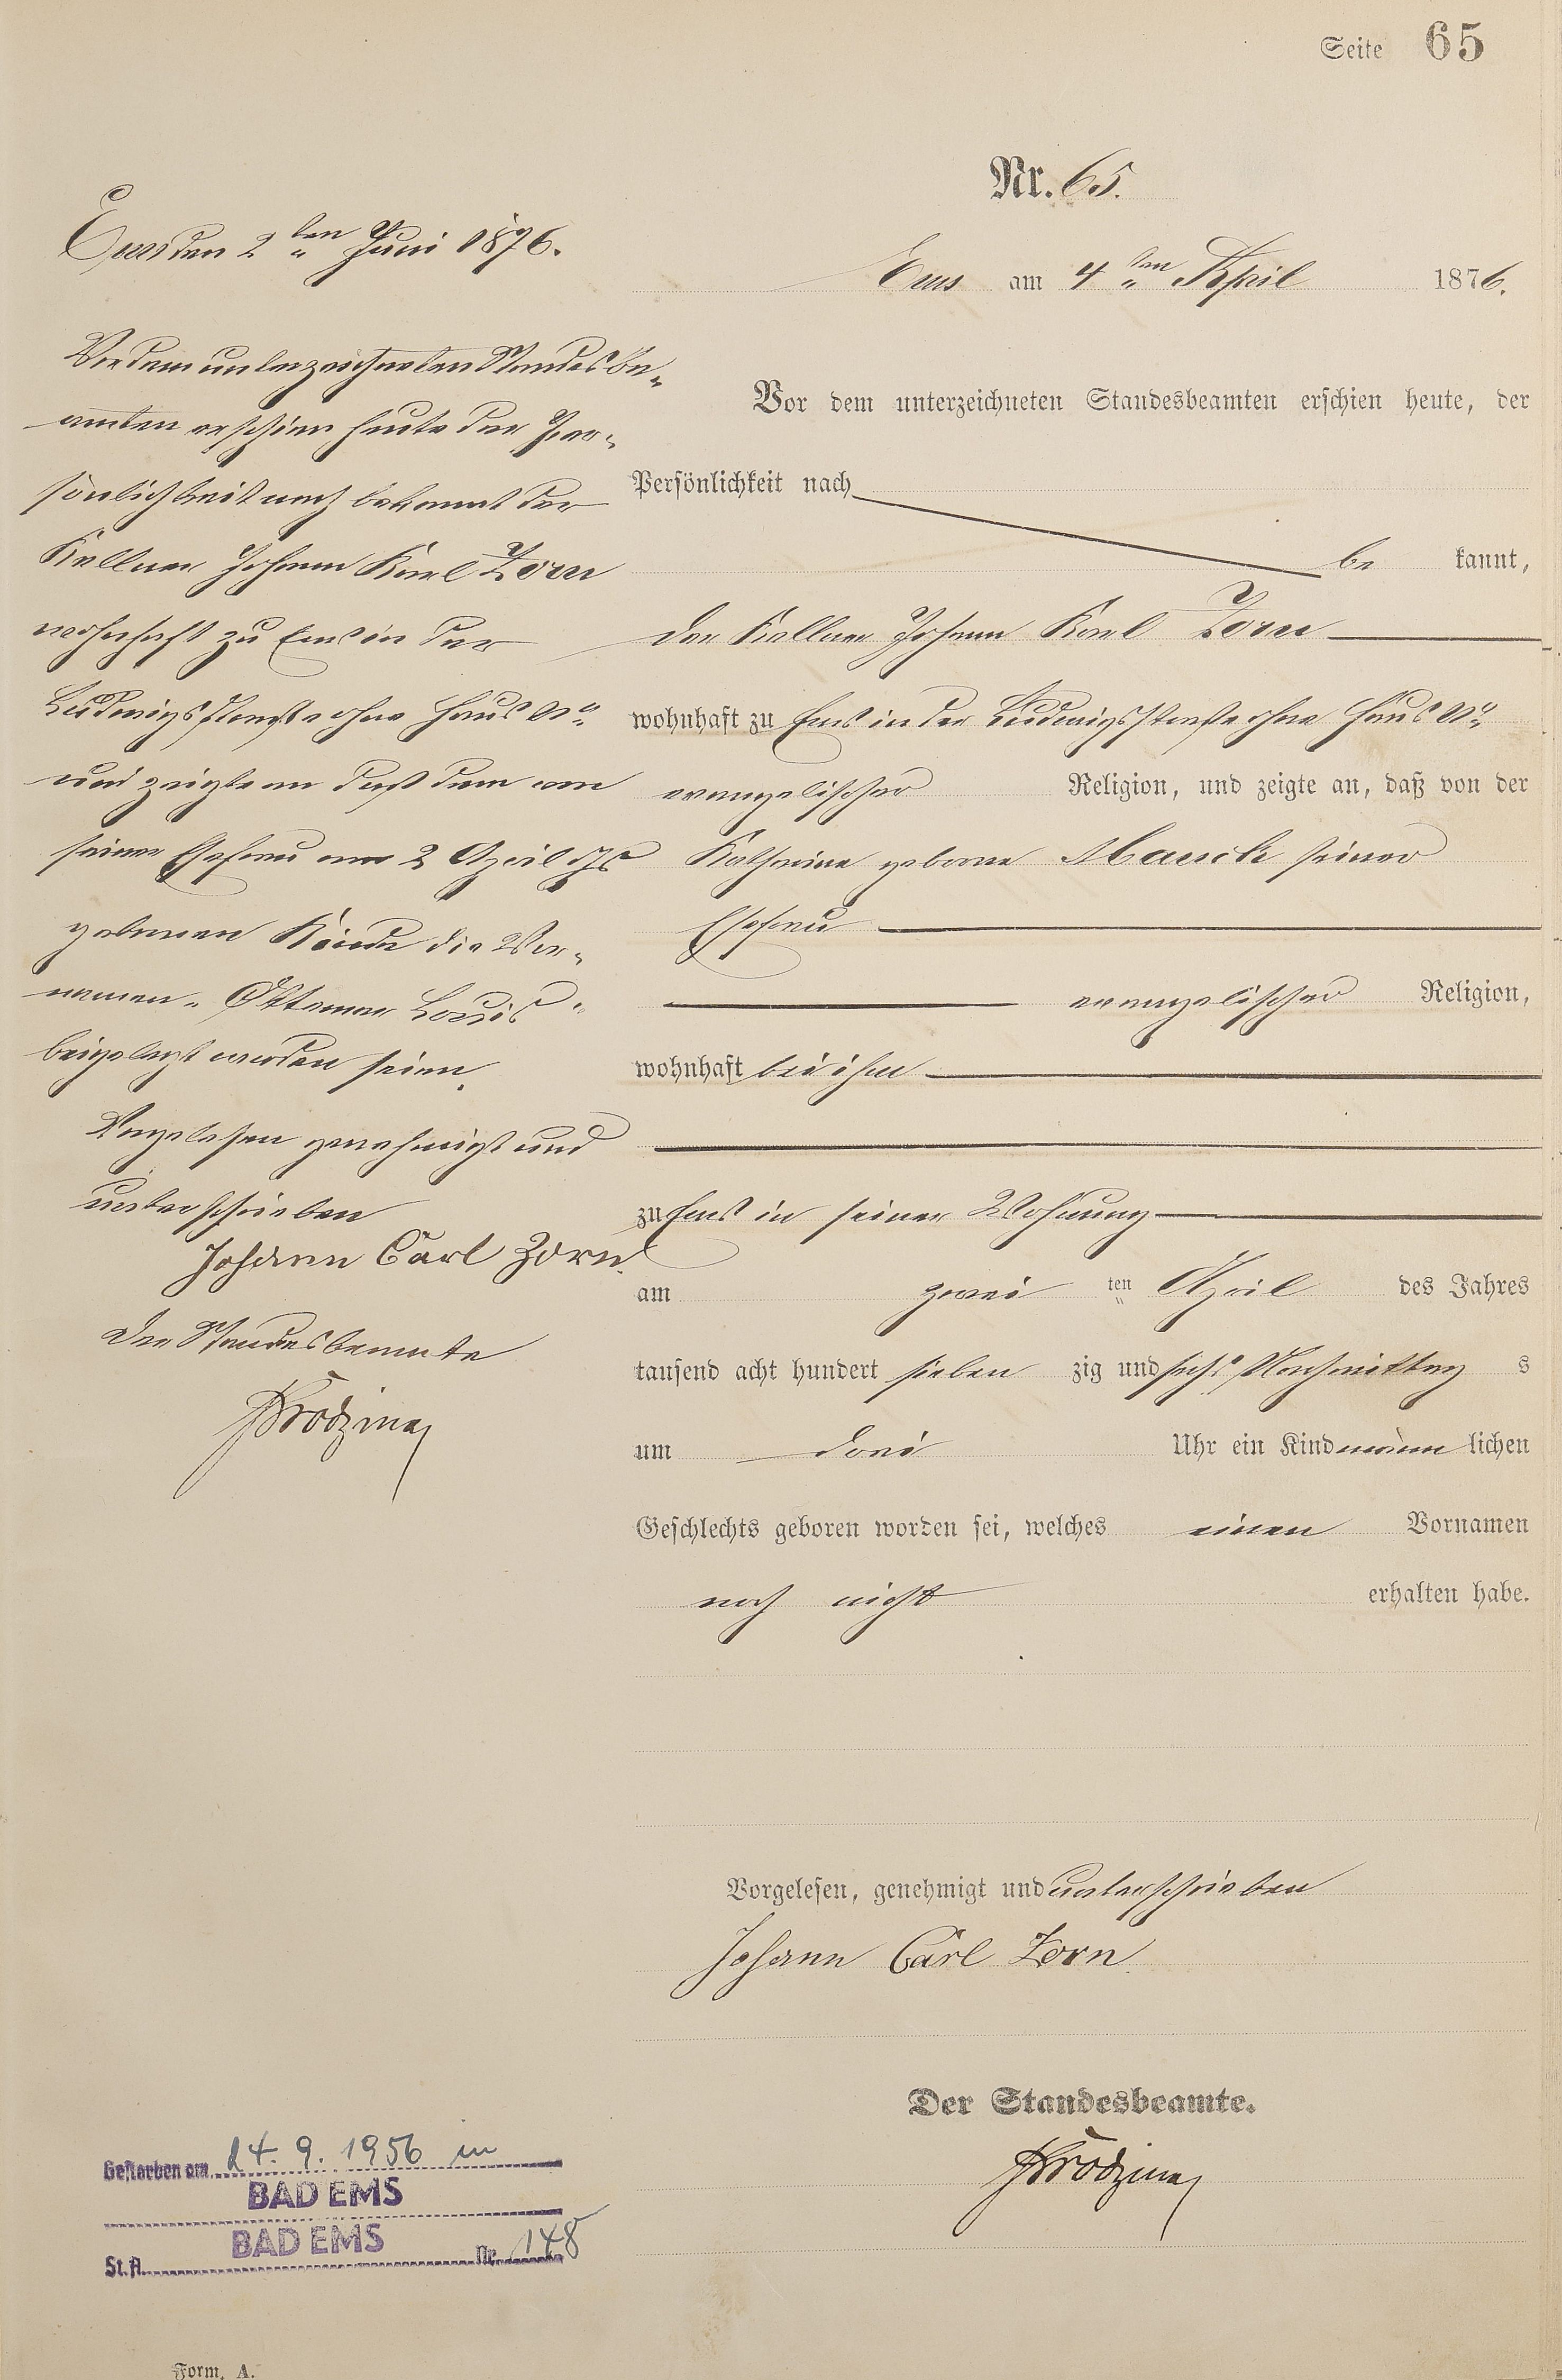 Seite 65
Nr. 65.
Ems am 4ten April 1876.
Vor dem unterzeichneten Standesbeamten erschien heute, der
Persönlichkeit nach
be kannt,
der Kellner Johann Karl Zorn
wohnhaft zu Ems in der Ludwigsstraße ohne Haus No
evangelischer Religion, und zeigte an, daß von der
Katharine geborne Mauch seiner
Ehefrau
evangelischer Religion,
wohnhaft bei ihm
zu Ems in seiner Wohnung
am zwei ten April des Jahres
tausend acht hundert sieben zig und sechs Nachmittag s
um drei Uhr ein Kind männ lichen
Geschlechts geboren worden sei, welches einen Vornamen
noch nicht erhalten habe.
Vorgelesen, genehmigt und unterschrieben
Johann Carl Zorn
Der Standesbeamte.
Ems den 2ten Juni 1876.
Vor dem unterzeichneten Standesbe-
amten erschien heute der Per-
sönlichkeit nach bekannt der
Kellner Johann Karl Zorn
wohnhaft zu Ems in der
Ludwigsstraße ohne Haus No
und zeigte an daß dem von
seiner Ehefrau am 2 April d Js
gebornen Kinde die Vor-
namen "Ottomar Louis"
beigelegt worden seien.
Vorgelesen genehmigt und
unterschrieben
Johann Carl Zorn.
Der Standesbeamte
Gestorben am 24. 9. 1956 in
BAD EMS
BAD EMS
St. A. Nr. 148
Form. A.